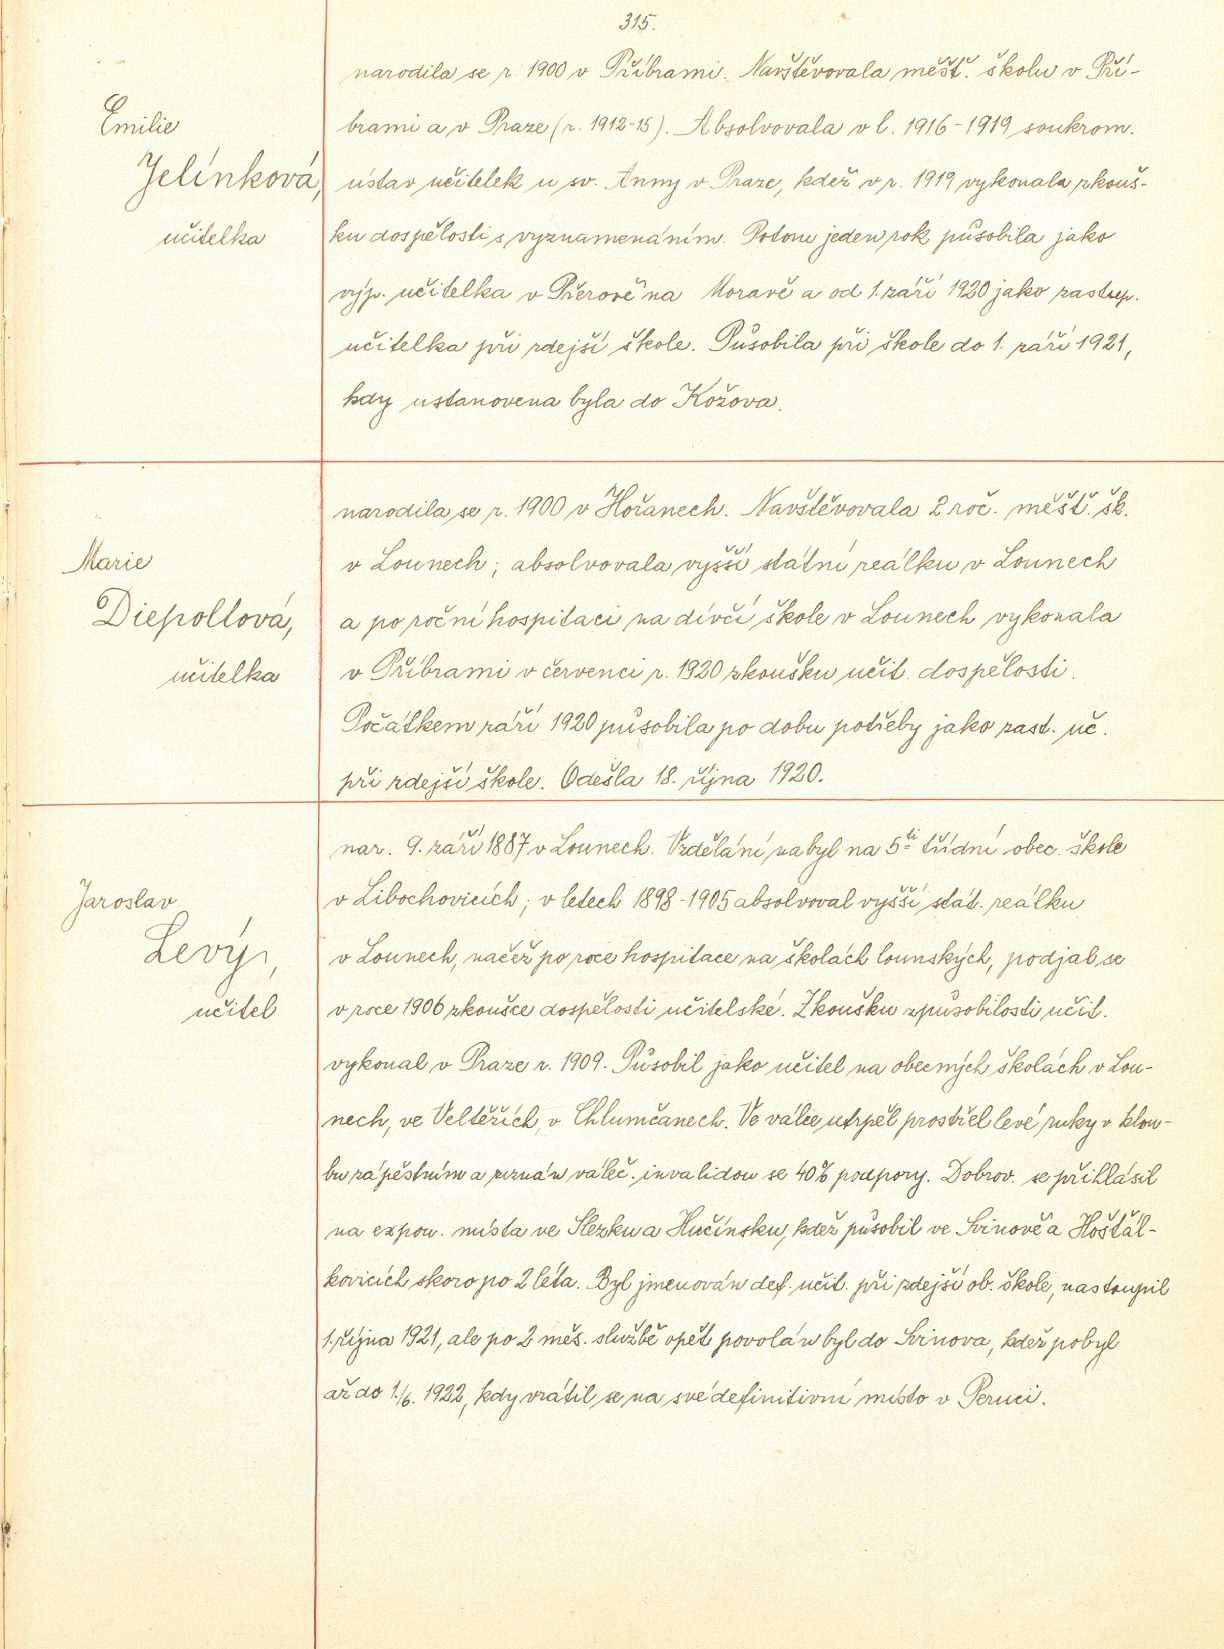 315.
Emilie
Jelínková,
učitelka
narodila se r. 1900 v Příbrami. Navštěvovala měšť. školu v Pří-
brami a v Praze (r. 1912-15). Absolvovala v l. 1916-1919 soukrom.
ústav učitelek u sv. Anny v Praze, kdež v r. 1919 vykonala zkouš-
ku dospělosti s vyznamenáním. Potom jeden rok působila jako
výp. učitelka v Přerově na Moravě a od 1. září 1920 jako zastup.
učitelka při zdejší škole. Působila při škole do 1. září 1921,
kdy ustanovena byla do Kožova.
Marie
Diepoltová,
učitelka
narodila se r. 1900 v Hořanech. Navštěvovala 2 roč. měšť. šk.
v Lounech; absolvovala vyšší státní reálku v Lounech
a po roční hospitaci na dívčí škole v Lounech vykonala
v Příbrami v červenci r. 1920 zkoušku učit. dospělosti.
Počátkem září 1920 působila po dobu potřeby jako zast. uč.
při zdejší škole. Odešla 18. října 1920.
Jaroslav
Levý,
učitel
nar. 9. září 1887 v Lounech. Vzdělání nabyl na 5ti třídní obec. škole
v Libochovicích; v letech 1898-1905 absolvoval vyšší stát. reálku
v Lounech, načež po roce hospitace na školách lounských, podjal se
v roce 1906 zkoušce dospělosti učitelské. Zkoušku způsobilosti učit.
vykonal v Praze r. 1909. Působil jako učitel na obecných školách v Lou-
nech, ve Veltěžích, v Chlumčanech. Ve válce utrpěl prostřel levé ruky v klou-
bu zápěstním a uznán váleč. invalidou se 40% podpory. Dobrov. se přihlásil
na expon. místa ve Slezku a Hučínsku, kdež působil ve Svinově a Hošťál-
kovicích skoro po 2 léta. Byl jmenován def. učit. při zdejší ob. škole, nastoupil
1. října 1921, ale po 2 měs. službě opět povolán byl do Svinova, kdež pobyl
až do 1./6. 1922, kdy vrátil se na své definitivní místo v Peruci.